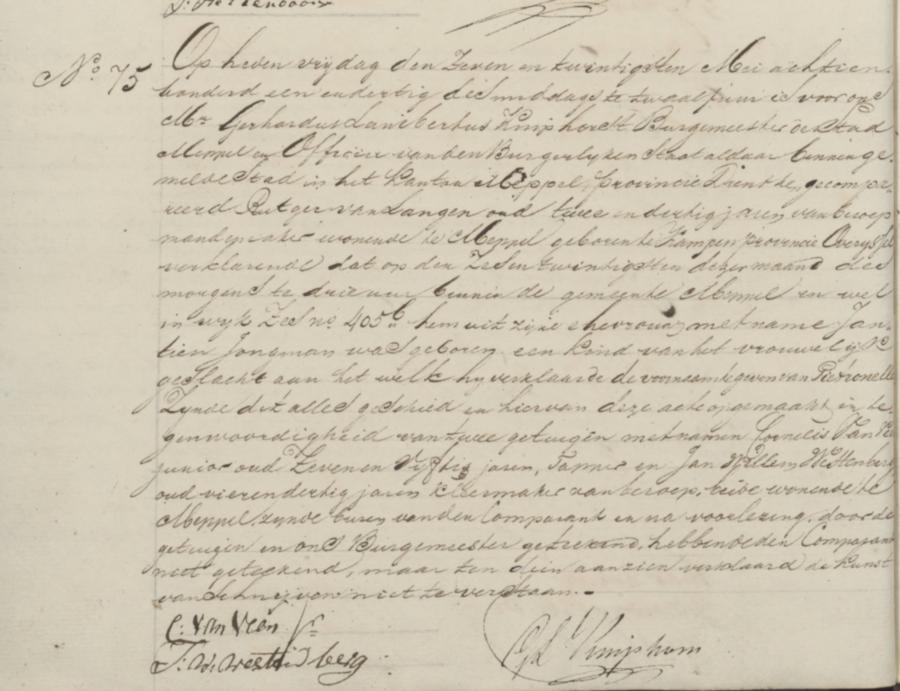 No. 75
Op heden vrijdag den Zeven en twintigsten Mei achttien
honderd een en dertig des middags te twaalf uur is voor ons
Mr Gerhardus Lambertus Kniphorst Burgemeester der Stad
Meppel en Officier van den Burgerlijken Staat aldaar binnen ge-
melde Stad in het Kanton Meppel, provincie Drenthe, gecompa-
reerd Rutger van Langen oud twee en dertig jaren van beroep
mandemaker wonende te Meppel geboren te Kampen provincie Overyssel
verklarende dat op den Zes en twintigsten dezer maand des
morgens te drie uur binnen de gemeente Meppel en wel
in wyk Zes no. 405b hem uit zijne ehevrouw met name Jan-
tien Jongman was geboren een kind van het vrouwelijk
geslacht aan het welk hy verklaarde de voornaam te geven van Pieternella
Zynde dit alles geschied en hiervan deze acte opgemaakt in te-
genwoordigheid van twee getuigen met namen Cornelis van Veen
junior oud Zeven en Vyftig jaren, Tapper en Jan Willem Westenberg
oud vier en dertig jaren kleermaker van beroep, beide wonende te
Meppel zynde buren van den Comparant en na voorlezing door de
getuigen en ons Burgemeester geteekend, hebbende den Comparant
niet geteekend, maar ten dien aanzien verklaard de kunst
van Schryven niet te verstaan.-
C: van Veen Jr
J: W: Westenberg
GL Kniphorst